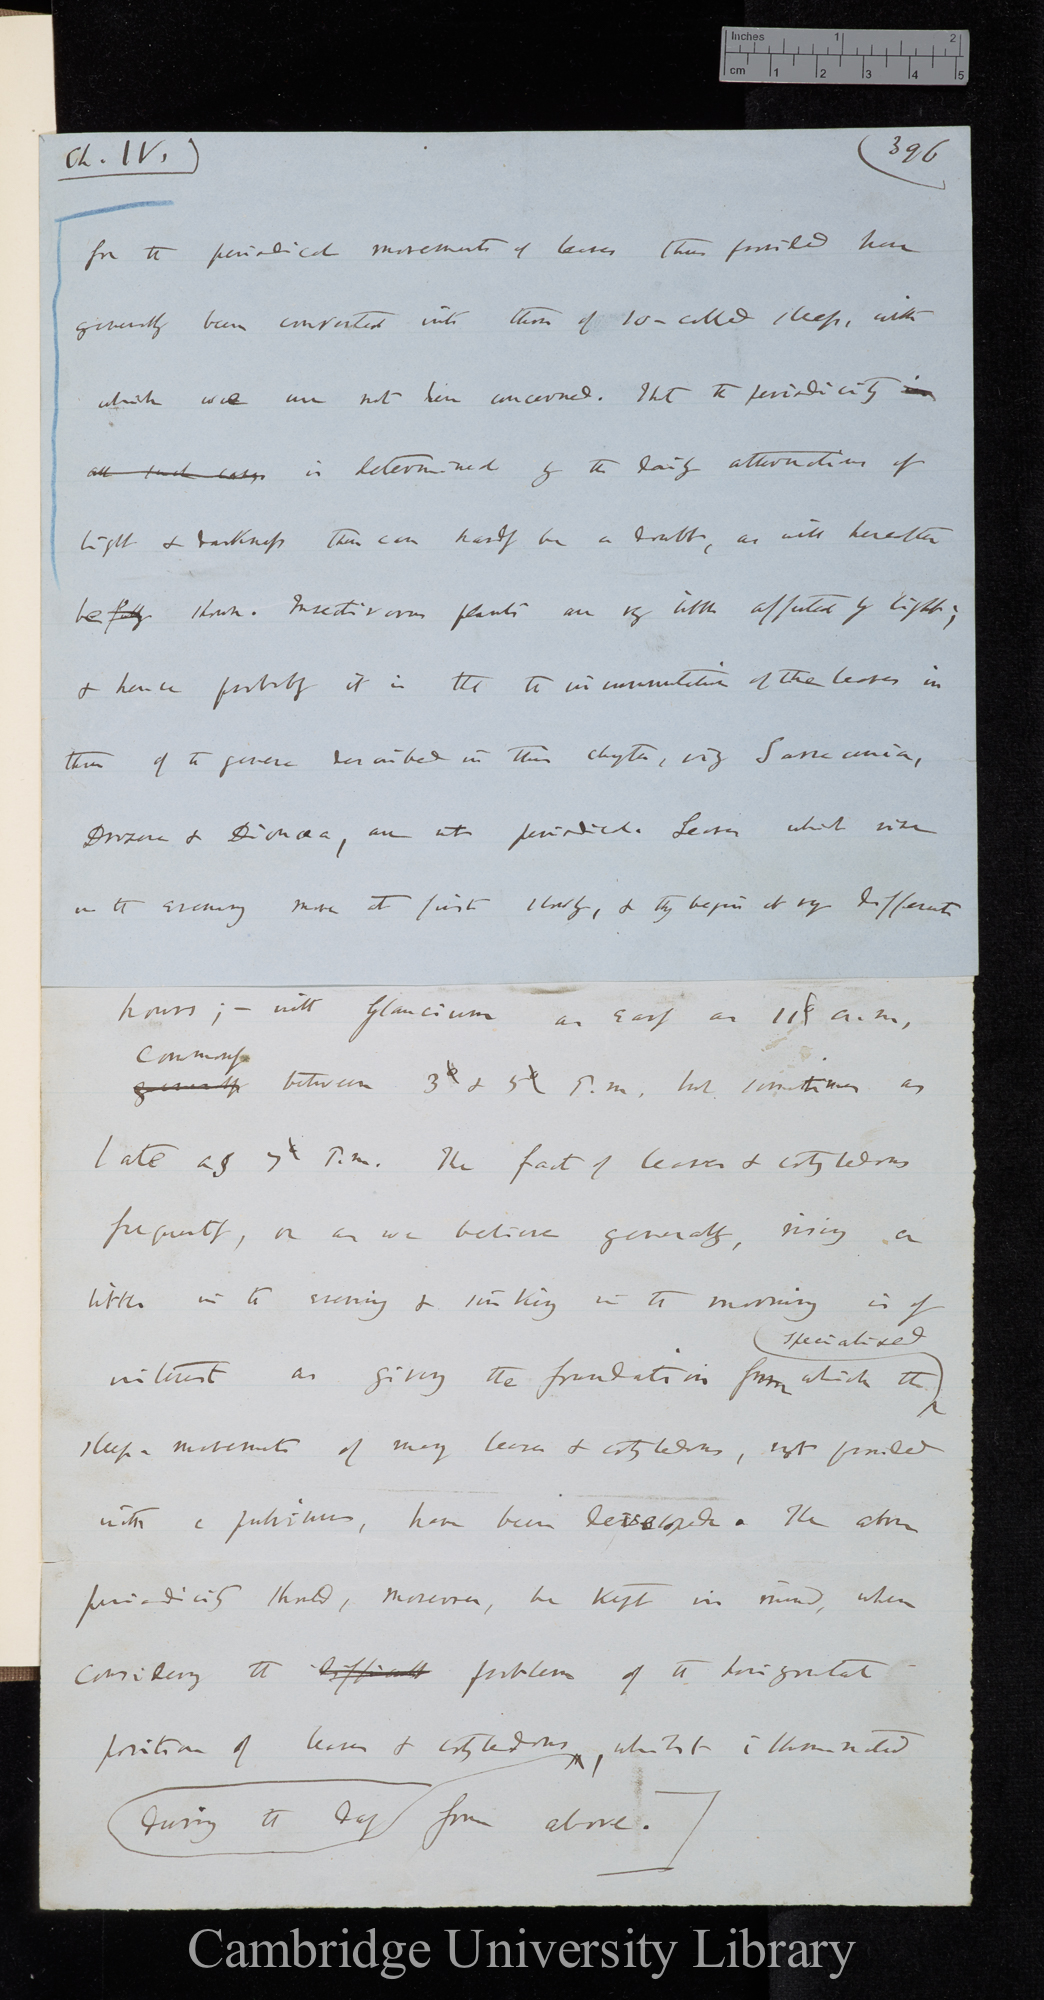 Inches 1 2
cm 1 2 3 4 5
Ch. IV.
396
for the periodical movements of leaves thus provided have
generally been converted into those of so-called sleep, with
which we are not here concerned. That the periodicity in
all such cases is determined by the daily alternations of
light & darkness there can hardly be a doubt, as will hereafter
be fully shown. Insectivorous plants are very little affected by light;
& hence probably it is that the circumnutation of the leaves in
those of the genera described in this chapter, viz Sarracenia,
Drosera & Dionaea, are not periodical. Leaves which rise
in the evening move at first slowly, & they begin at very different
hours; – with Glaucium as early as 11 a.m,
commonly
generally between 3 & 5 P.m. but sometimes as
late as 7 P.m. The fact of leaves & cotyledons
frequently, or as we believe generally, rising a
little in the evening & sinking in the morning is of
specialised
interest as giving the foundation from which the
sleep-movements of many leaves & cotyledons, not provided
with a pulvinus, have been developed. The above
periodicity should, moreover, be kept in mind, when
considering the difficult problem of the horizontal
position of leaves & cotyledons, whilst illuminated
during the day from above.
Cambridge University Library